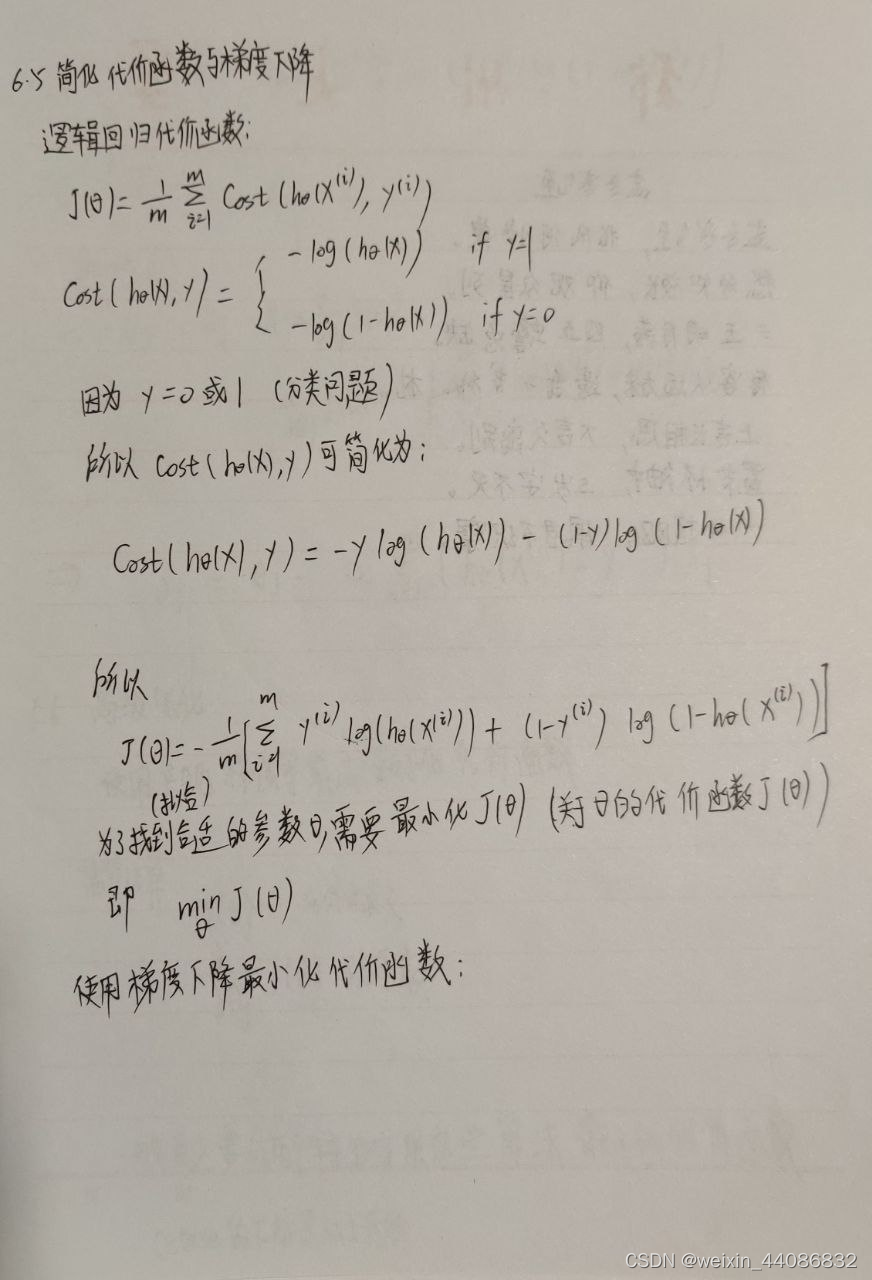 6.5 简化代价函数与梯度下降
逻辑回归代价函数:
J(θ)= 1/m ∑_{i=1}^{m} Cost(hθ(X^(i)), y^(i))
Cost(hθ(X), y) = { -log(hθ(X)) if y=1
-log(1-hθ(X)) if y=0
因为 y=0 或 1 (分类问题)
所以 Cost(hθ(X), y) 可简化为:
Cost(hθ(X), y) = -y log(hθ(X)) - (1-y) log(1-hθ(X))
所以
J(θ)= - 1/m [∑_{i=1}^{m} y^(i) log(hθ(X^(i))) + (1-y^(i)) log(1-hθ(X^(i)))]
(拟合)
为了找到合适的参数θ,需要最小化J(θ) (关于θ的代价函数J(θ))
即 min_θ J(θ)
使用梯度下降最小化代价函数:
CSDN @weixin_44086832